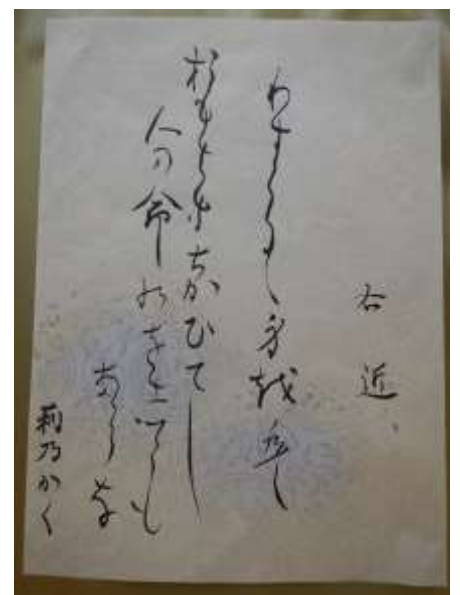 右近
わすらるゝ身越盤
おもはすちかひてし
人の命のをしくも
あるかな
莉乃かく